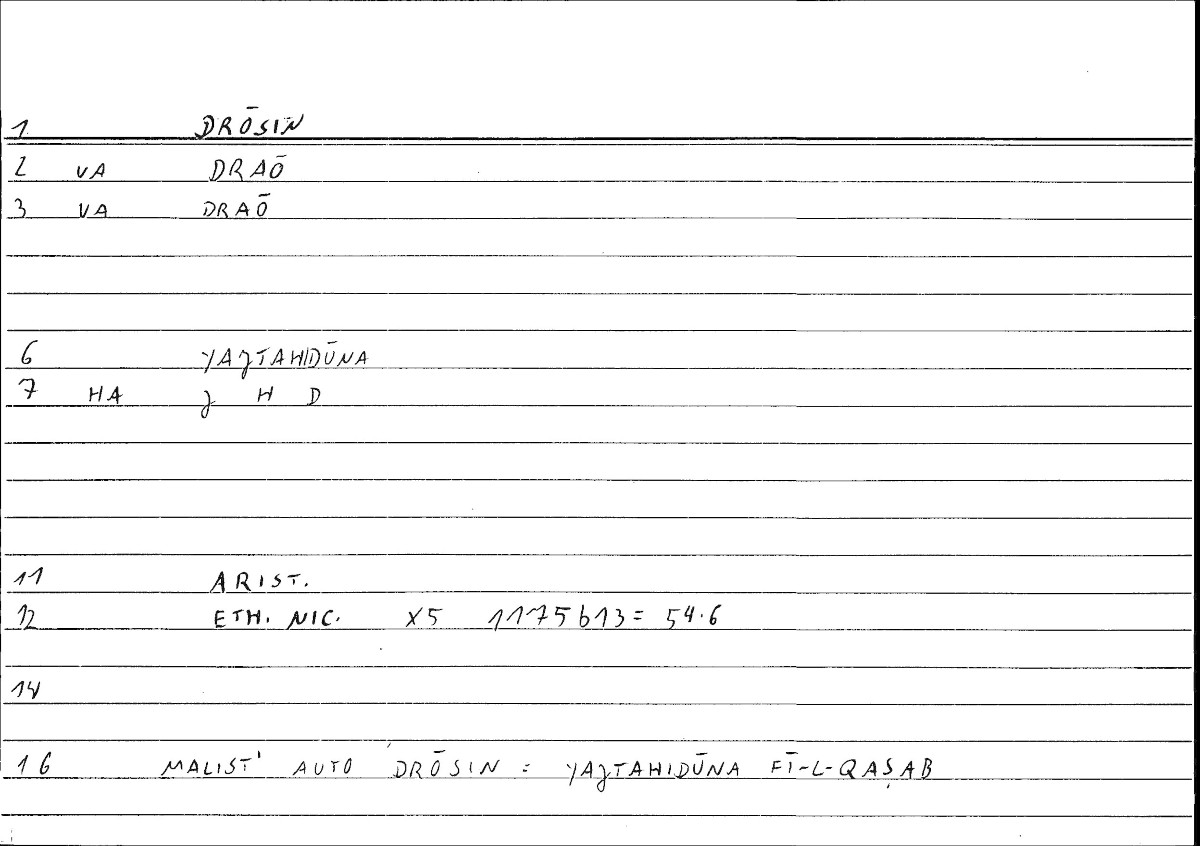 1 DRŌSIN
2 VA DRAŌ
3 VA DRAŌ
6 YAJTAHIDŪNA
7 HA J H D
11 ARIST.
12 ETH. NIC. X5 1175b13 = 54.6
14
16 MALIST' AUTO DRŌSIN : YAJTAHIDŪNA FĪ-L-QAṢAB